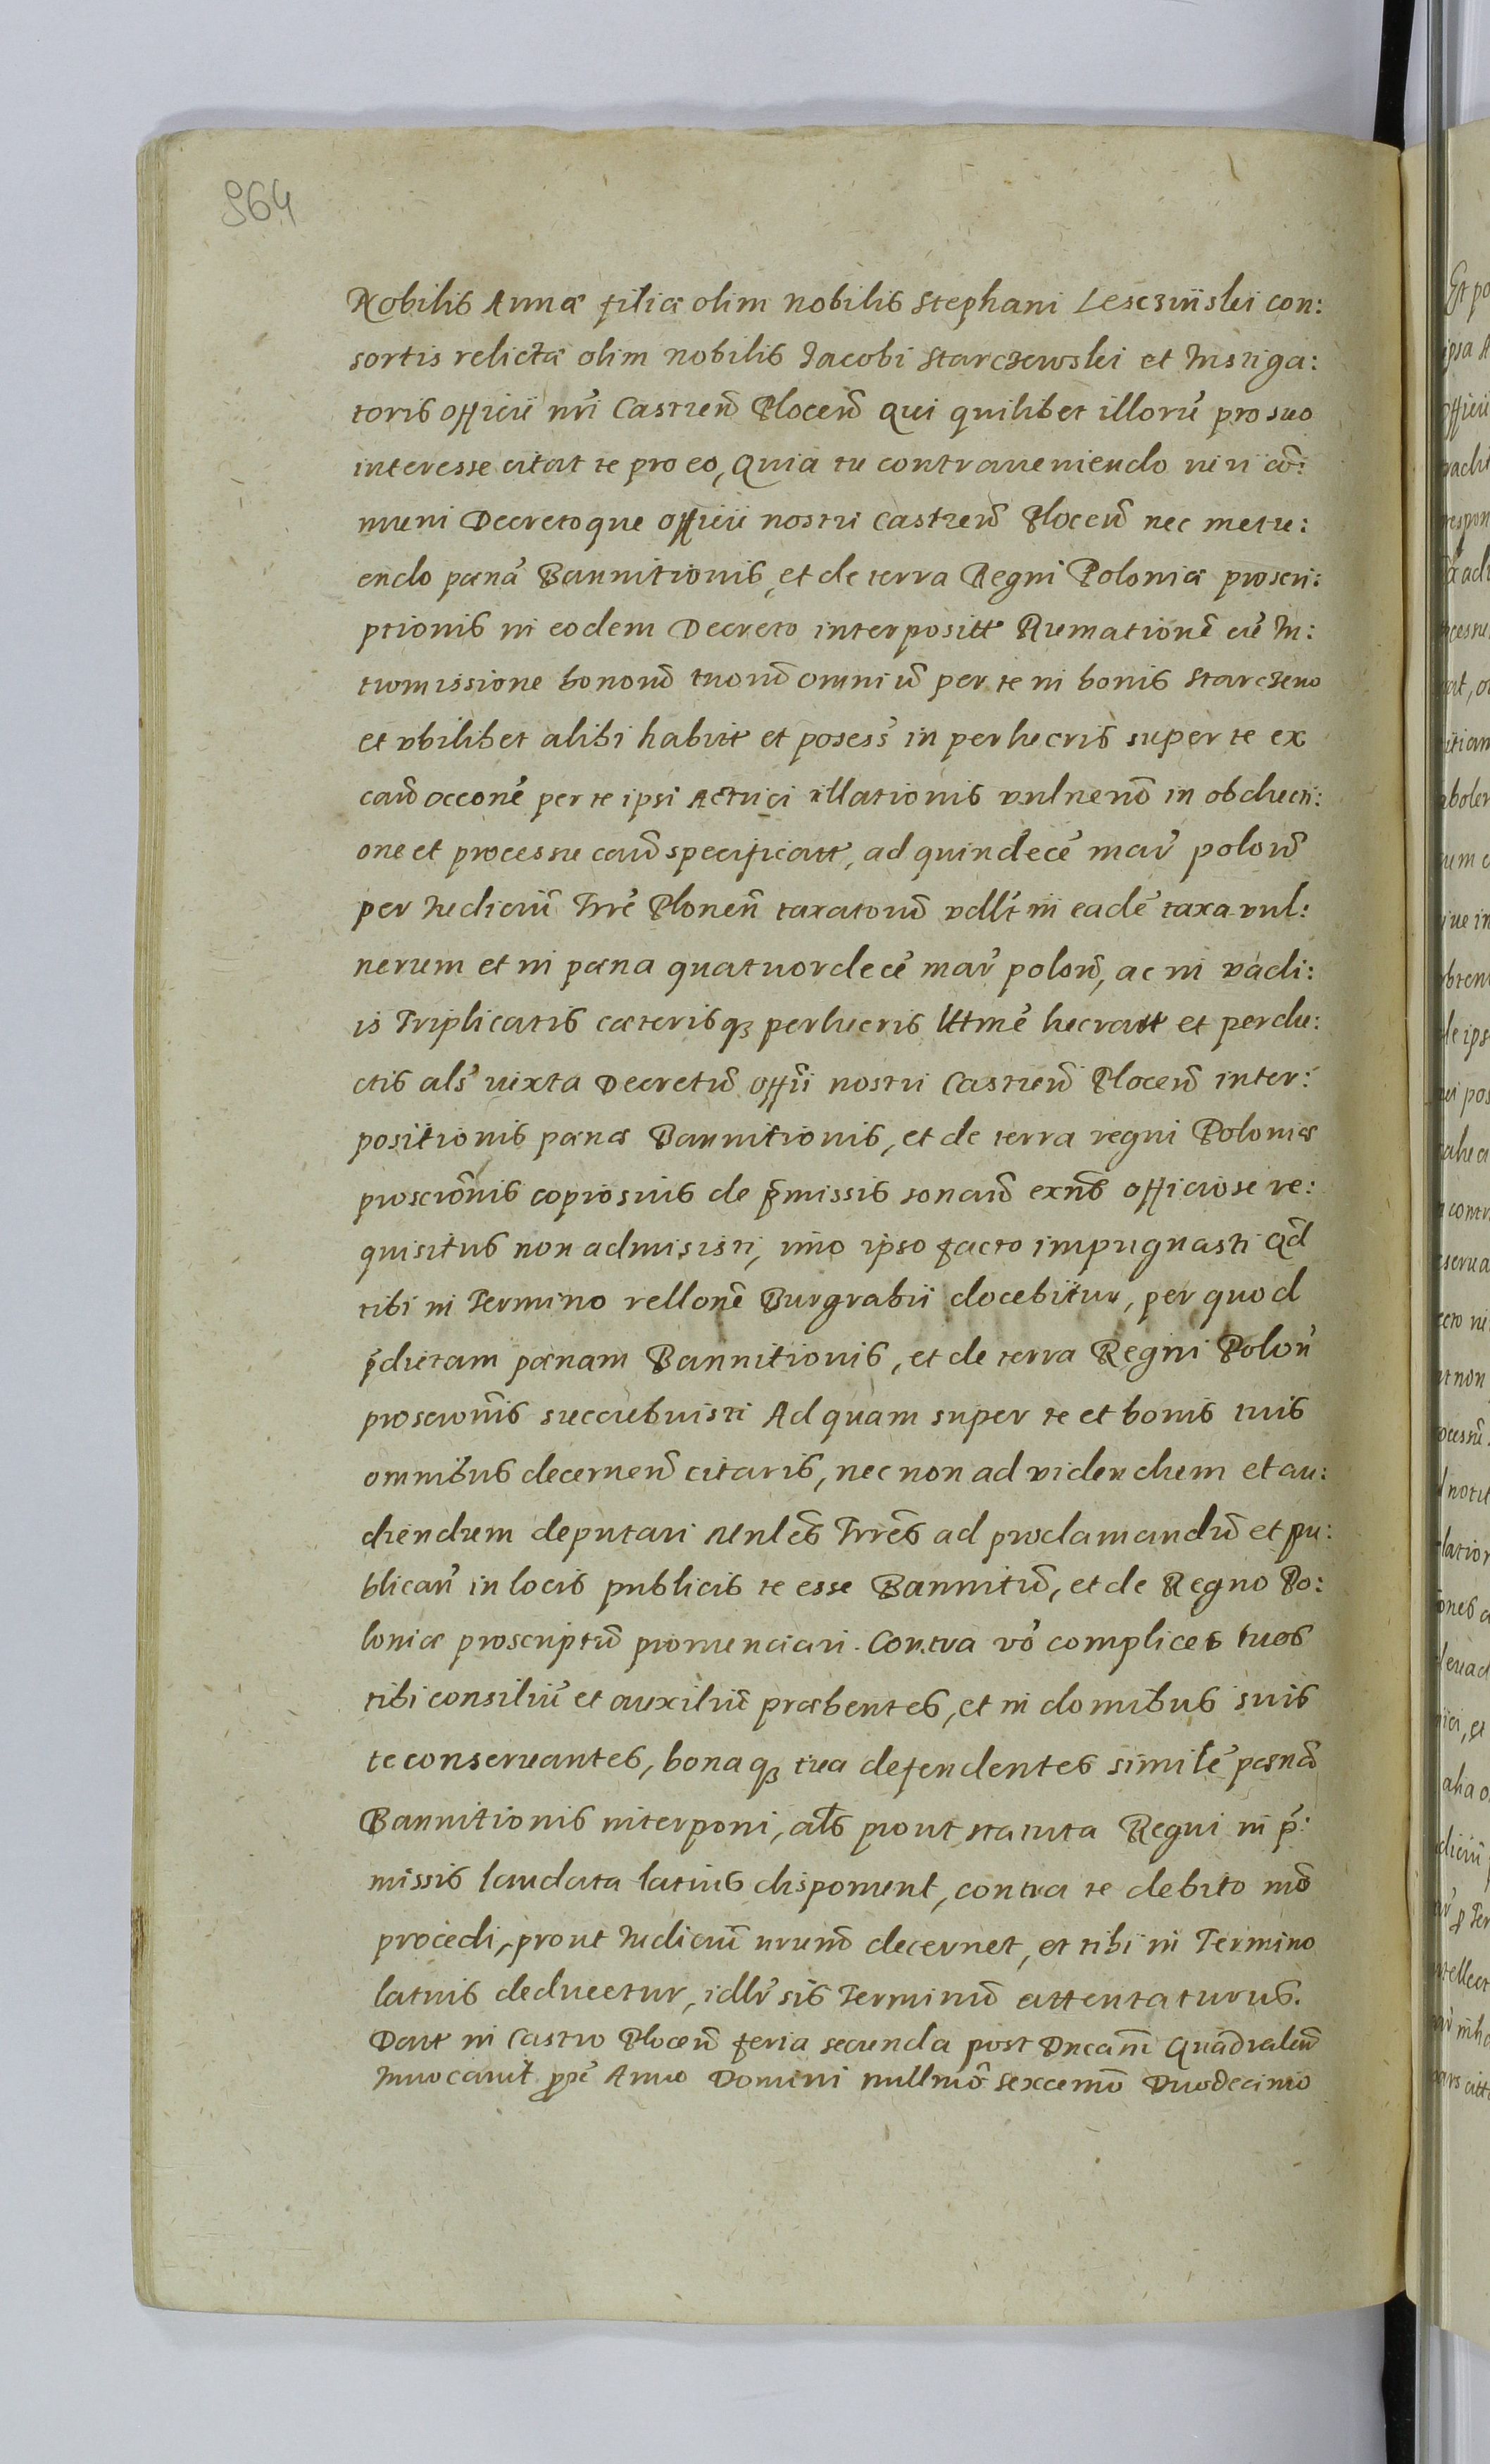 964
Nobilis Annæ filiæ olim nobilis Stephani Lesczijnski con:
sortis relictæ olim nobilis Jacobi Starczewski et Instiga:
toris officii nr̄i Castren̄ Plocen̄ qui quilibet illorū pro suo
interesse citat te pro eo, Quia tu contraveniendo iuri cō:
muni Decretoque officii nostri Castren̄ Plocen̄ nec metu:
endo pœnā Bannitionis, et de terra Regni Poloniæ proscri:
ptionis in eodem Decreto interpositt Rumationē cū In:
tromissione bonorū tuorū omniū per te in bonis Starczewo
et ubilibet alibi habitt et posess̄ in perlucris super te ex
caū occōne per te ipsi Actrici illationis vulnerū in obducti:
one et processu caū specificatt, ad quindecē mar̄ polon̄
per Iudiciū Trrē Plonen̄ taxatorū vdlt in eadē taxa vul:
nerum et in pœna quatuordecē mar̄ polon̄, ac in vadi:
is Triplicatis cæterisq₃ perlucris lttmē lucratt et perdu:
ctis als̄ iuxta Decretū offīi nostri Castren̄ Plocen̄ inter:
positionis pœnæ Bannitionis, et de terra regni Poloniæ
proscrōnis copiosius de p̄missis sonaū exn̄s officiose re:
quisitus non admisisti, imo ipso facto impugnasti qd̄
tibi in Termino rellonē Burgrabii docebitur, per quod
p̄dictam pœnam Bannitionis, et de terra Regni Polon̄
proscriōnis succubuisti Ad quam super te et bonis tuis
omnibus decernen̄ citaris, nec non ad videndum et au:
diendum deputari Mnlēs Trrēs ad proclamandū et pu:
blican̄ in locis publicis te esse Bannitū, et de Regno Po:
loniæ proscriptū pronunciari. Contra vō complices tuos
tibi consiliū et auxiliū præbentes, et in domibus suis
te conservantes, bonaq₃ tua defendentes similē pœnā
Bannitionis interponi, als prout statuta Regni in p̄:
missis laudata latius disponent, contra te debito mō
procedi, prout Iudiciū nrum̄ decernet, et tibi in Termino
latius deducetur, idlr̄ sis Terminū attentaturus.
Datt in Castro Plocen̄ feria secunda post Dn̄cam̄ Quadralem̄
Invocavit pp̄ē Anno Domini millmō sexcenmō Duodecimo